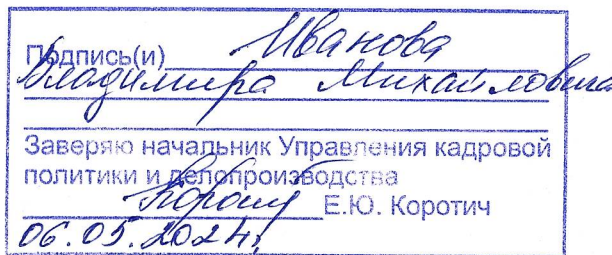 Подпись(и) Иванова
Владимира Михайловича
Заверяю начальник Управления кадровой
политики и делопроизводства
Е.Ю. Коротич
06.05.2024г.